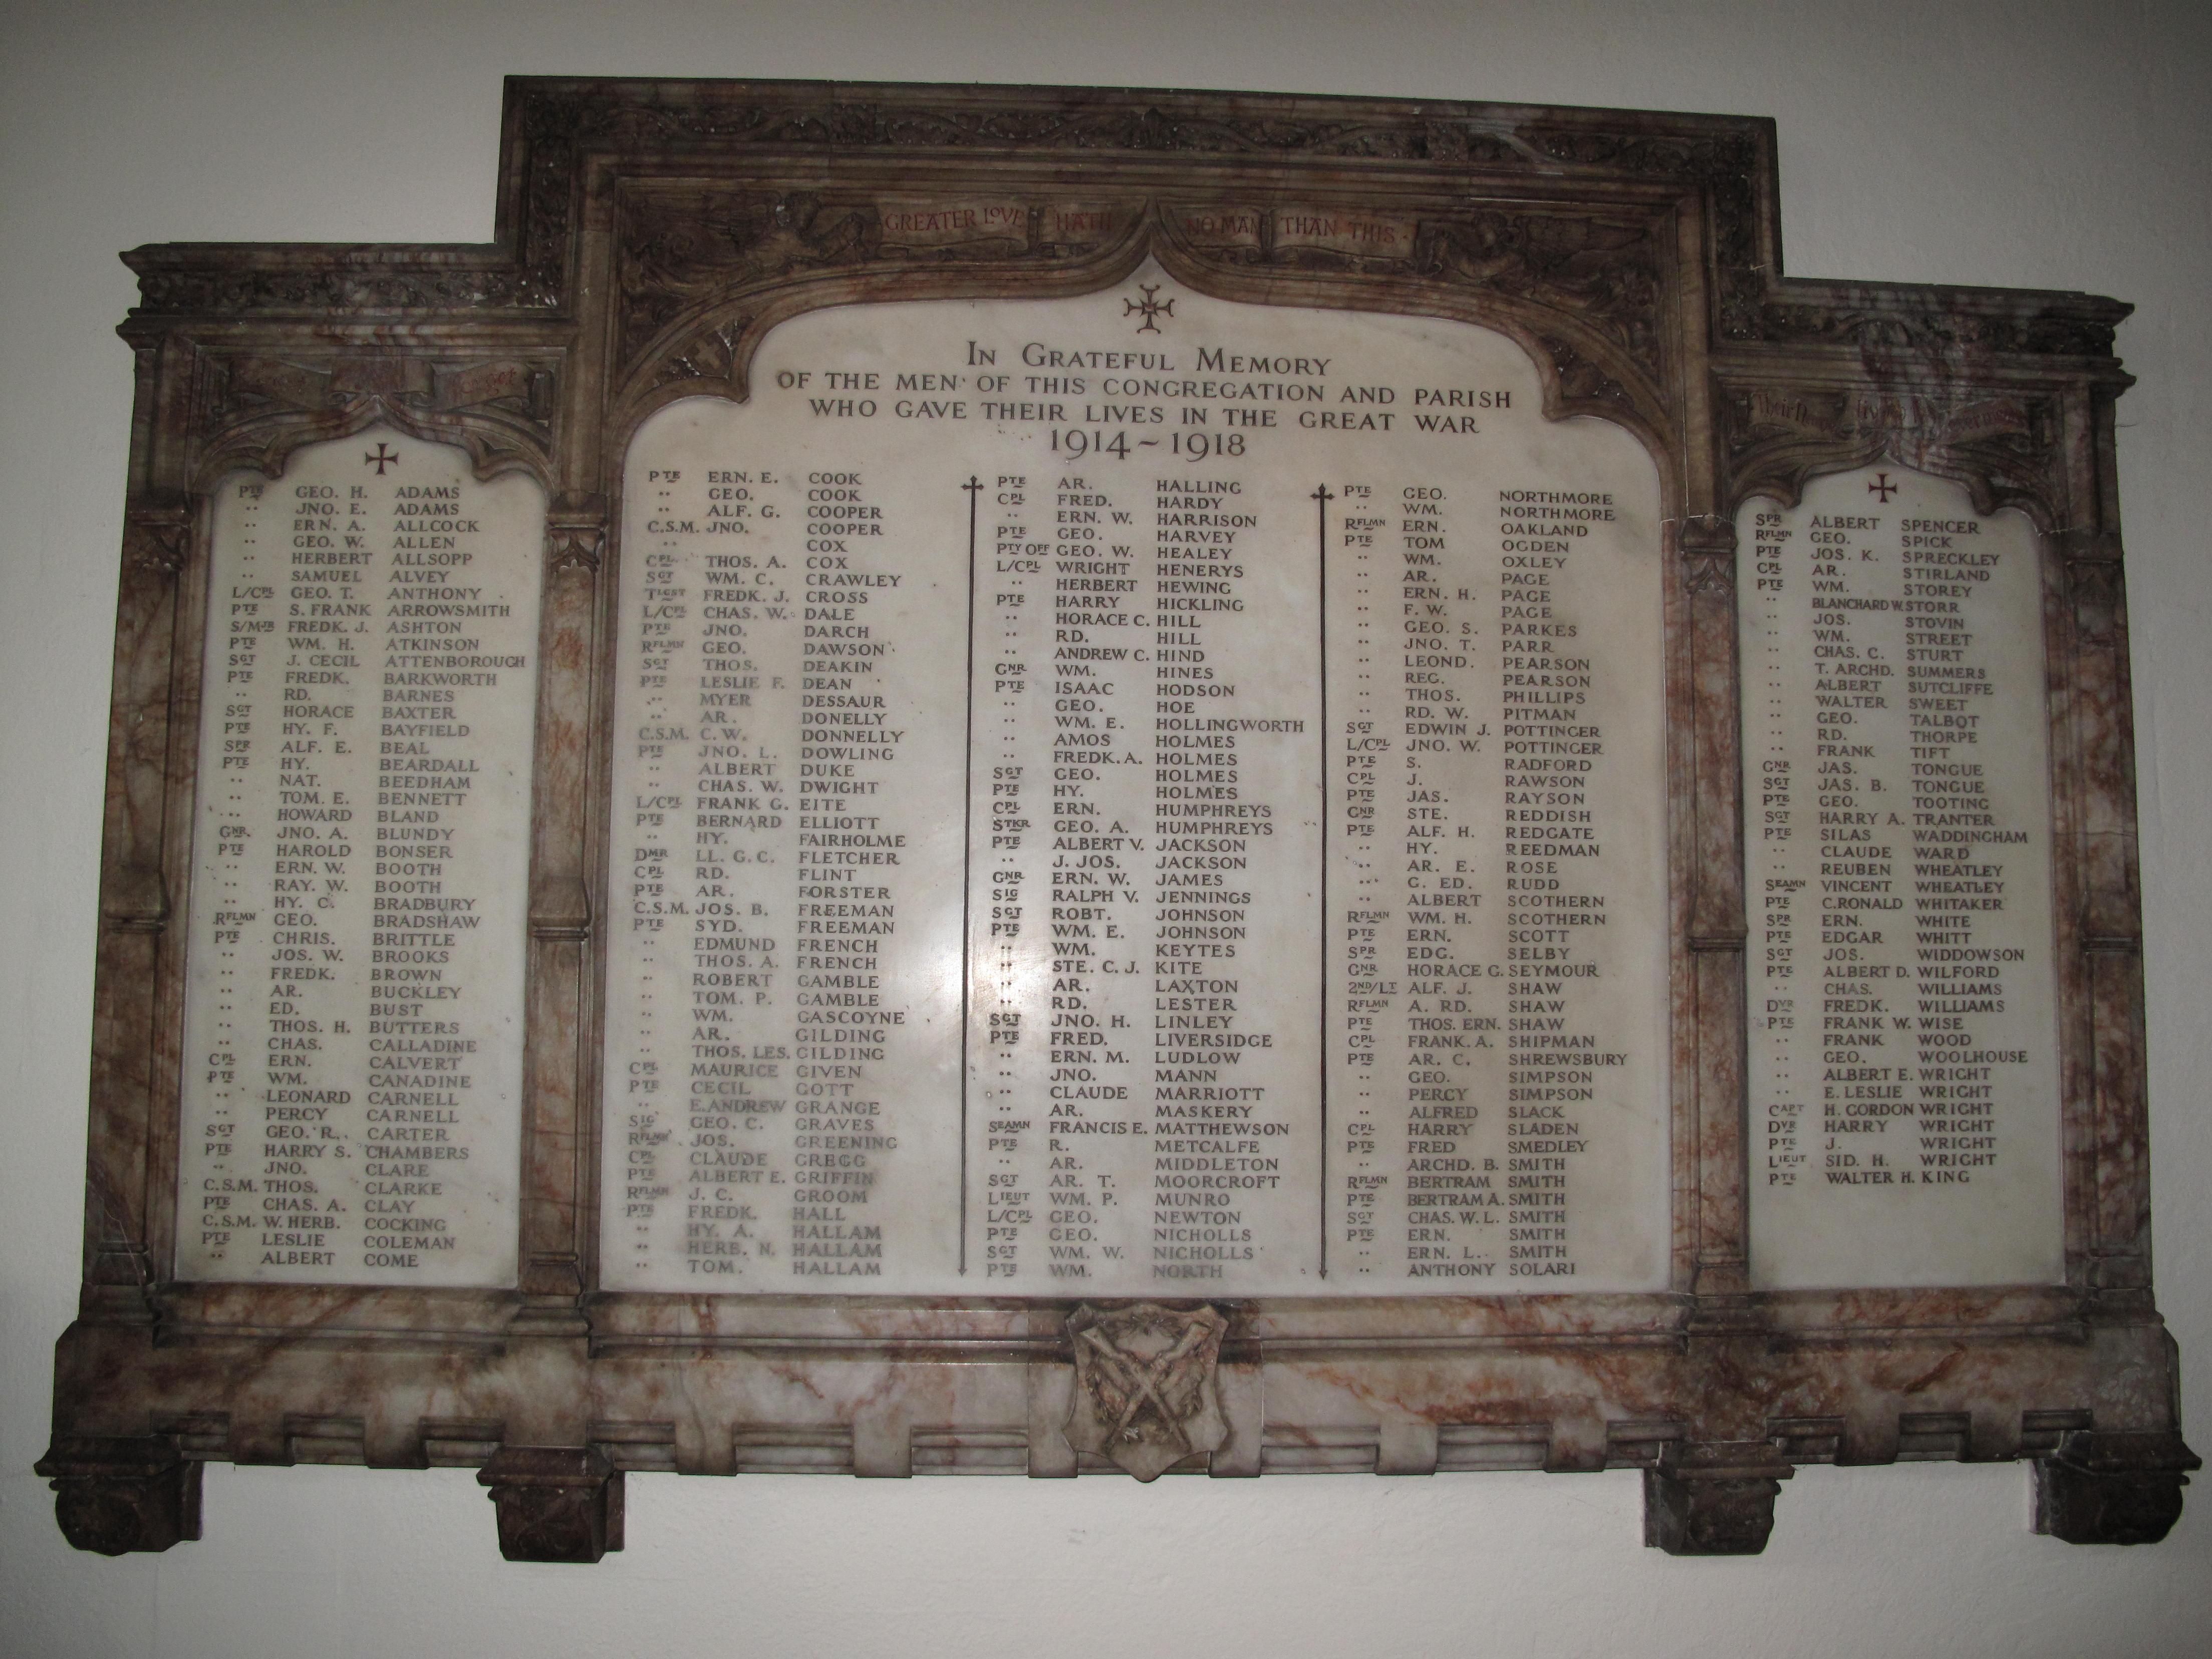 GREATER LOVE HATH NO MAN THAN THIS
IN GRATEFUL MEMORY
OF THE MEN OF THIS CONGREGATION AND PARISH
WHO GAVE THEIR LIVES IN THE GREAT WAR
1914~1918
PTE GEO. H. ADAMS
·· JNO. E. ADAMS
·· ERN. A. ALLCOCK
·· GEO. W. ALLEN
·· HERBERT ALLSOPP
·· SAMUEL ALVEY
L/CPL GEO. T. ANTHONY
PTE S. FRANK ARROWSMITH
FREDK. J. ASHTON
PTE WM. H. ATKINSON
SGT J. CECIL ATTENBOROUGH
PTE FREDK. BARKWORTH
·· RD. BARNES
SGT HORACE BAXTER
PTE HY. F. BAYFIELD
SPR ALF. E. BEAL
PTE HY. BEARDALL
·· NAT. BEEDHAM
·· TOM. E. BENNETT
·· HOWARD BLAND
GNR. JNO. A. BLUNDY
PTE HAROLD BONSER
·· ERN. W. BOOTH
·· RAY. W. BOOTH
·· HY. C. BRADBURY
RFLMN GEO. BRADSHAW
PTE CHRIS. BRITTLE
·· JOS. W. BROOKS
·· FREDK. BROWN
·· AR. BUCKLEY
·· ED. BUST
·· THOS. H. BUTTERS
·· CHAS. CALLADINE
CPL ERN. CALVERT
PTE WM. CANADINE
·· LEONARD CARNELL
·· PERCY CARNELL
SGT GEO. R. CARTER
PTE HARRY S. CHAMBERS
·· JNO. CLARE
C.S.M. THOS. CLARKE
PTE CHAS. A. CLAY
C.S.M. W. HERB. COCKING
PTE LESLIE COLEMAN
·· ALBERT COME
PTE ERN. E. COOK
·· GEO. COOK
·· ALF. G. COOPER
C.S.M. JNO. COOPER
·· COX
CPL THOS. A. COX
SGT WM. C. CRAWLEY
FREDK. J. CROSS
L/CPL CHAS. W. DALE
PTE JNO. DARCH
RFLMN GEO. DAWSON
SGT THOS. DEAKIN
PTE LESLIE F. DEAN
·· MYER DESSAUR
·· AR. DONELLY
C.S.M. C. W. DONNELLY
PTE JNO. L. DOWLING
·· ALBERT DUKE
·· CHAS. W. DWIGHT
L/CPL FRANK G. EITE
PTE BERNARD ELLIOTT
·· HY. FAIRHOLME
DMR LL. G. C. FLETCHER
CPL RD. FLINT
PTE AR. FORSTER
C.S.M. JOS. B. FREEMAN
PTE SYD. FREEMAN
·· EDMUND FRENCH
·· THOS. A. FRENCH
·· ROBERT GAMBLE
·· TOM. P. GAMBLE
·· WM. GASCOYNE
·· AR. GILDING
·· THOS. LES. GILDING
CPL MAURICE GIVEN
PTE CECIL GOTT
·· E. ANDREW GRANGE
SIG GEO. C. GRAVES
RFLMN JOS. GREENING
CPL CLAUDE GREGG
PTE ALBERT E. GRIFFIN
RFLMN J. C. GROOM
PTE FREDK. HALL
·· HY. A. HALLAM
·· HERB. N. HALLAM
·· TOM. HALLAM
PTE AR. HALLING
CPL FRED. HARDY
·· ERN. W. HARRISON
PTE GEO. HARVEY
PTY OFF GEO. W. HEALEY
L/CPL WRIGHT HENERYS
·· HERBERT HEWING
PTE HARRY HICKLING
·· HORACE C. HILL
·· RD. HILL
·· ANDREW C. HIND
GNR WM. HINES
PTE ISAAC HODSON
·· GEO. HOE
·· WM. E. HOLLINGWORTH
·· AMOS HOLMES
·· FREDK. A. HOLMES
SGT GEO. HOLMES
PTE HY. HOLMES
CPL ERN. HUMPHREYS
STKR GEO. A. HUMPHREYS
PTE ALBERT V. JACKSON
·· J. JOS. JACKSON
GNR ERN. W. JAMES
SIG RALPH V. JENNINGS
SGT ROBT. JOHNSON
PTE WM. E. JOHNSON
·· WM. KEYTES
·· STE. C. J. KITE
·· AR. LAXTON
·· RD. LESTER
SGT JNO. H. LINLEY
PTE FRED. LIVERSIDGE
·· ERN. M. LUDLOW
·· JNO. MANN
·· CLAUDE MARRIOTT
·· AR. MASKERY
SEAMN FRANCIS E. MATTHEWSON
PTE R. METCALFE
·· AR. MIDDLETON
SGT AR. T. MOORCROFT
LIEUT WM. P. MUNRO
L/CPL GEO. NEWTON
PTE GEO. NICHOLLS
SGT WM. W. NICHOLLS
PTE WM. NORTH
PTE GEO. NORTHMORE
·· WM. NORTHMORE
RFLMN ERN. OAKLAND
PTE TOM OGDEN
·· WM. OXLEY
·· AR. PAGE
·· ERN. H. PAGE
·· F. W. PAGE
·· GEO. S. PARKES
·· JNO. T. PARR
·· LEOND. PEARSON
·· REG. PEARSON
·· THOS. PHILLIPS
·· RD. W. PITMAN
SGT EDWIN J. POTTINGER
L/CPL JNO. W. POTTINGER
PTE S. RADFORD
CPL J. RAWSON
PTE JAS. RAYSON
GNR STE. REDDISH
PTE ALF. H. REDGATE
·· HY. REEDMAN
·· AR. E. ROSE
·· G. ED. RUDD
·· ALBERT SCOTHERN
RFLMN WM. H. SCOTHERN
PTE ERN. SCOTT
SPR EDG. SELBY
GNR HORACE G. SEYMOUR
2ND/LT ALF. J. SHAW
RFLMN A. RD. SHAW
PTE THOS. ERN. SHAW
CPL FRANK. A. SHIPMAN
PTE AR. C. SHREWSBURY
·· GEO. SIMPSON
·· PERCY SIMPSON
·· ALFRED SLACK
CPL HARRY SLADEN
PTE FRED SMEDLEY
·· ARCHD. B. SMITH
RFLMN BERTRAM SMITH
PTE BERTRAM A. SMITH
SGT CHAS. W. L. SMITH
PTE ERN. SMITH
·· ERN. L. SMITH
·· ANTHONY SOLARI
SPR ALBERT SPENCER
RFLMN GEO. SPICK
PTE JOS. K. SPRECKLEY
CPL AR. STIRLAND
PTE WM. STOREY
·· BLANCHARD W. STORR
·· JOS. STOVIN
·· WM. STREET
·· CHAS. C. STURT
·· T. ARCHD. SUMMERS
·· ALBERT SUTCLIFFE
·· WALTER SWEET
·· GEO. TALBOT
·· RD. THORPE
·· FRANK TIFT
GNR JAS. TONGUE
SGT JAS. B. TONGUE
PTE GEO. TOOTING
SGT HARRY A. TRANTER
PTE SILAS WADDINGHAM
·· CLAUDE WARD
·· REUBEN WHEATLEY
SEAMN VINCENT WHEATLEY
PTE C. RONALD WHITAKER
SPR ERN. WHITE
PTE EDGAR WHITT
SGT JOS. WIDDOWSON
PTE ALBERT D. WILFORD
·· CHAS. WILLIAMS
DVR FREDK. WILLIAMS
PTE FRANK W. WISE
·· FRANK WOOD
·· GEO. WOOLHOUSE
·· ALBERT E. WRIGHT
·· E. LESLIE WRIGHT
CAPT H. GORDON WRIGHT
DVR HARRY WRIGHT
PTE J. WRIGHT
LIEUT SID. H. WRIGHT
PTE WALTER H. KING